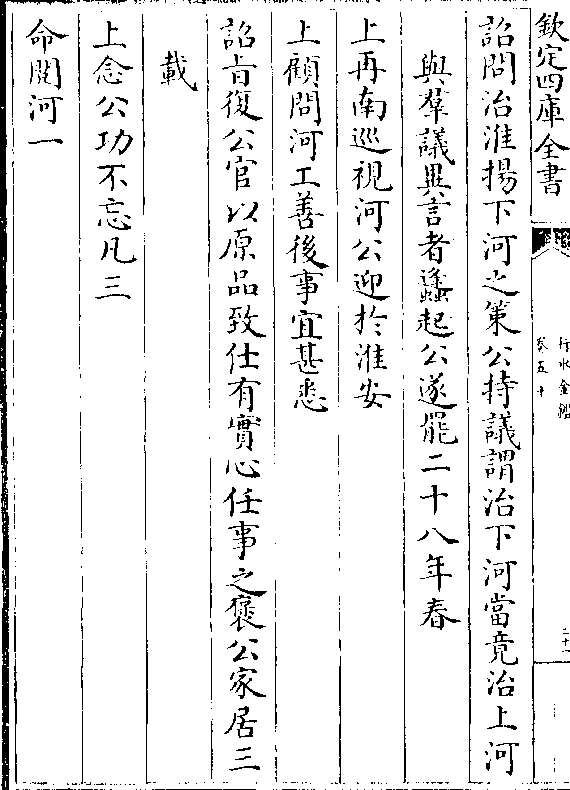 欽定四庫全書
行水金鑑
卷五十
二十一
詔問治淮揚下河之策公持議謂治下河當竟治上河
與羣議異言者蠭起公遂罷二十八年春
上再南巡視河公迎於淮安
上顧問河工善後事宜甚悉
詔旨復公官以原品致仕有實心任事之褒公家居三
載
上念公功不忘凡三
命閱河一